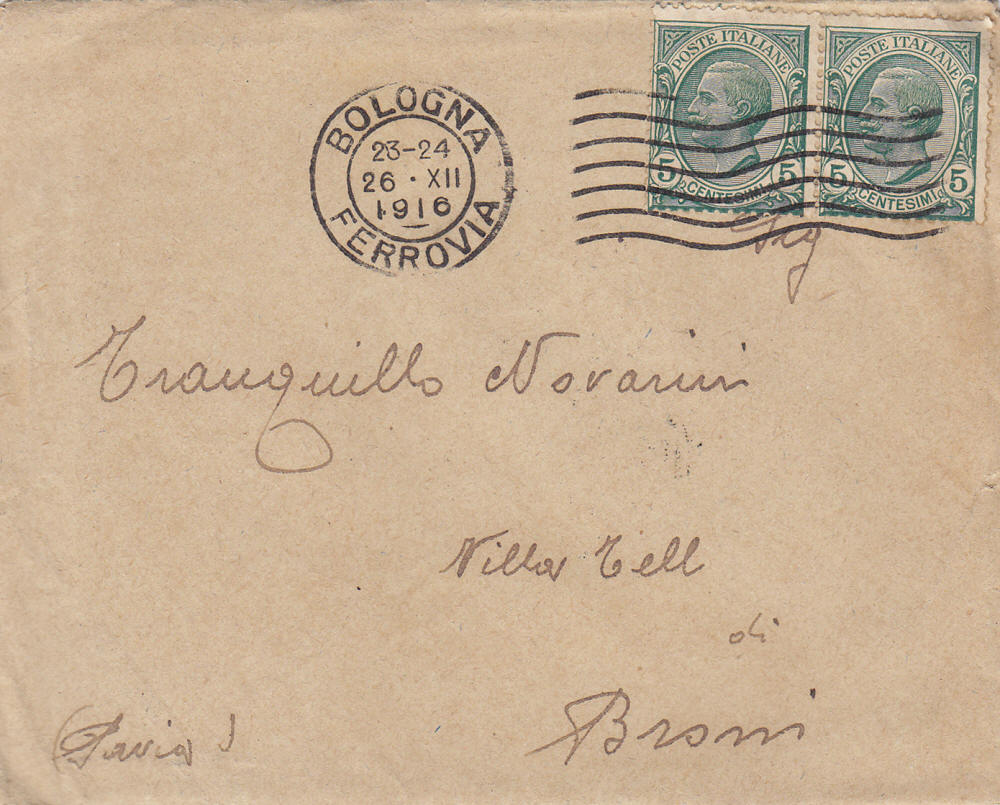 POSTE ITALIANE
5 CENTESIMI 5
POSTE ITALIANE
5 CENTESIMI 5
BOLOGNA
23-24
26 · XII
1916
FERROVIA
Sig
Tranquillo Novarini
Villa Tell
di
Broni
(Pavia)